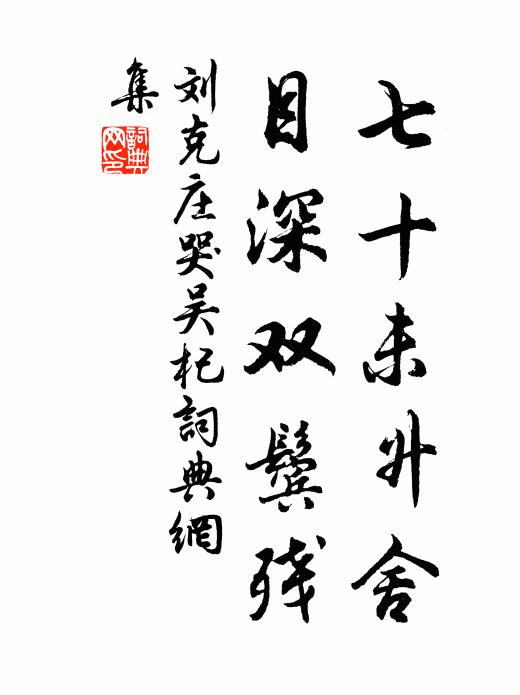 七十未升舍
目深双鬓残
刘克庄哭吴杞詞典網
集
詞典
网印